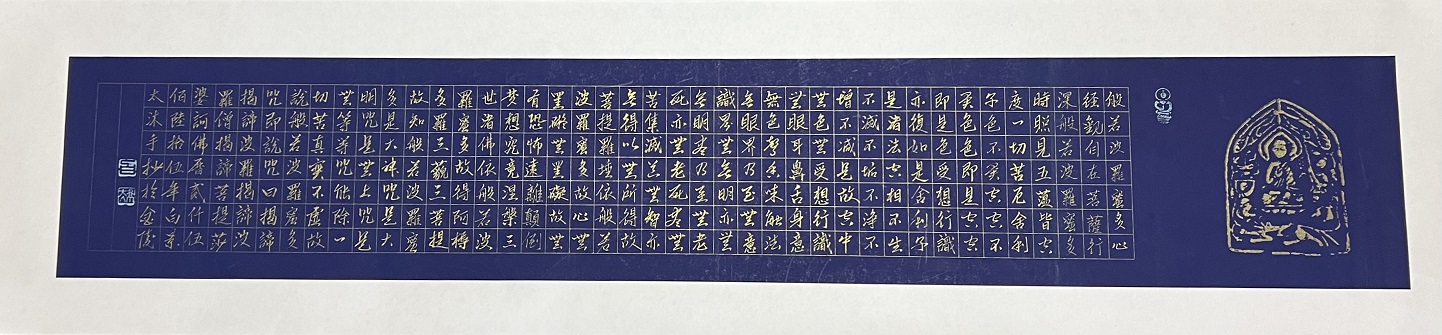 般若波羅蜜多心
經觀自在菩薩行
深般若波羅蜜多
時照見五蘊皆空
度一切苦厄舍利
子色不異空空不
異色色即是空空
即是色受想行識
亦復如是舍利子
是諸法空相不生
不滅不垢不淨不
增不減是故空中
無色無受想行識
無眼耳鼻舌身意
無色聲香味觸法
無眼界乃至無意
識界無無明亦無
無明盡乃至無老
死亦無老死盡無
苦集滅道無智亦
無得以無所得故
菩提薩埵依般若
波羅蜜多故心無
罣礙無罣礙故無
有恐怖遠離顛倒
夢想究竟涅槃三
世諸佛依般若波
羅蜜多故得阿耨
多羅三藐三菩提
故知般若波羅蜜
多是大神咒是大
明咒是無上咒是
無等等咒能除一
切苦真實不虛故
說般若波羅蜜多
咒即說咒曰揭諦
揭諦波羅揭諦波
羅僧揭諦菩提莎
婆訶佛曆貳什伍
佰陸拾伍年白
太洙手抄於